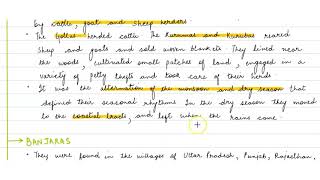 by cattle, goat and sheep herders
• The Gollas herded cattle. The Kurumas and Kurubas reared
sheep and goats and sold woven blankets. They lived near
the woods, cultivated small patches of land, engaged in a
variety of petty trades and took care of their herds
• It was the alternation of the monsoon and dry season that
defined their seasonal rhythms. In the dry season they moved
to the coastal tracts, and left when the rains came.
→ BANJARAS
• They were found in the villages of Uttar Pradesh, Punjab, Rajasthan,